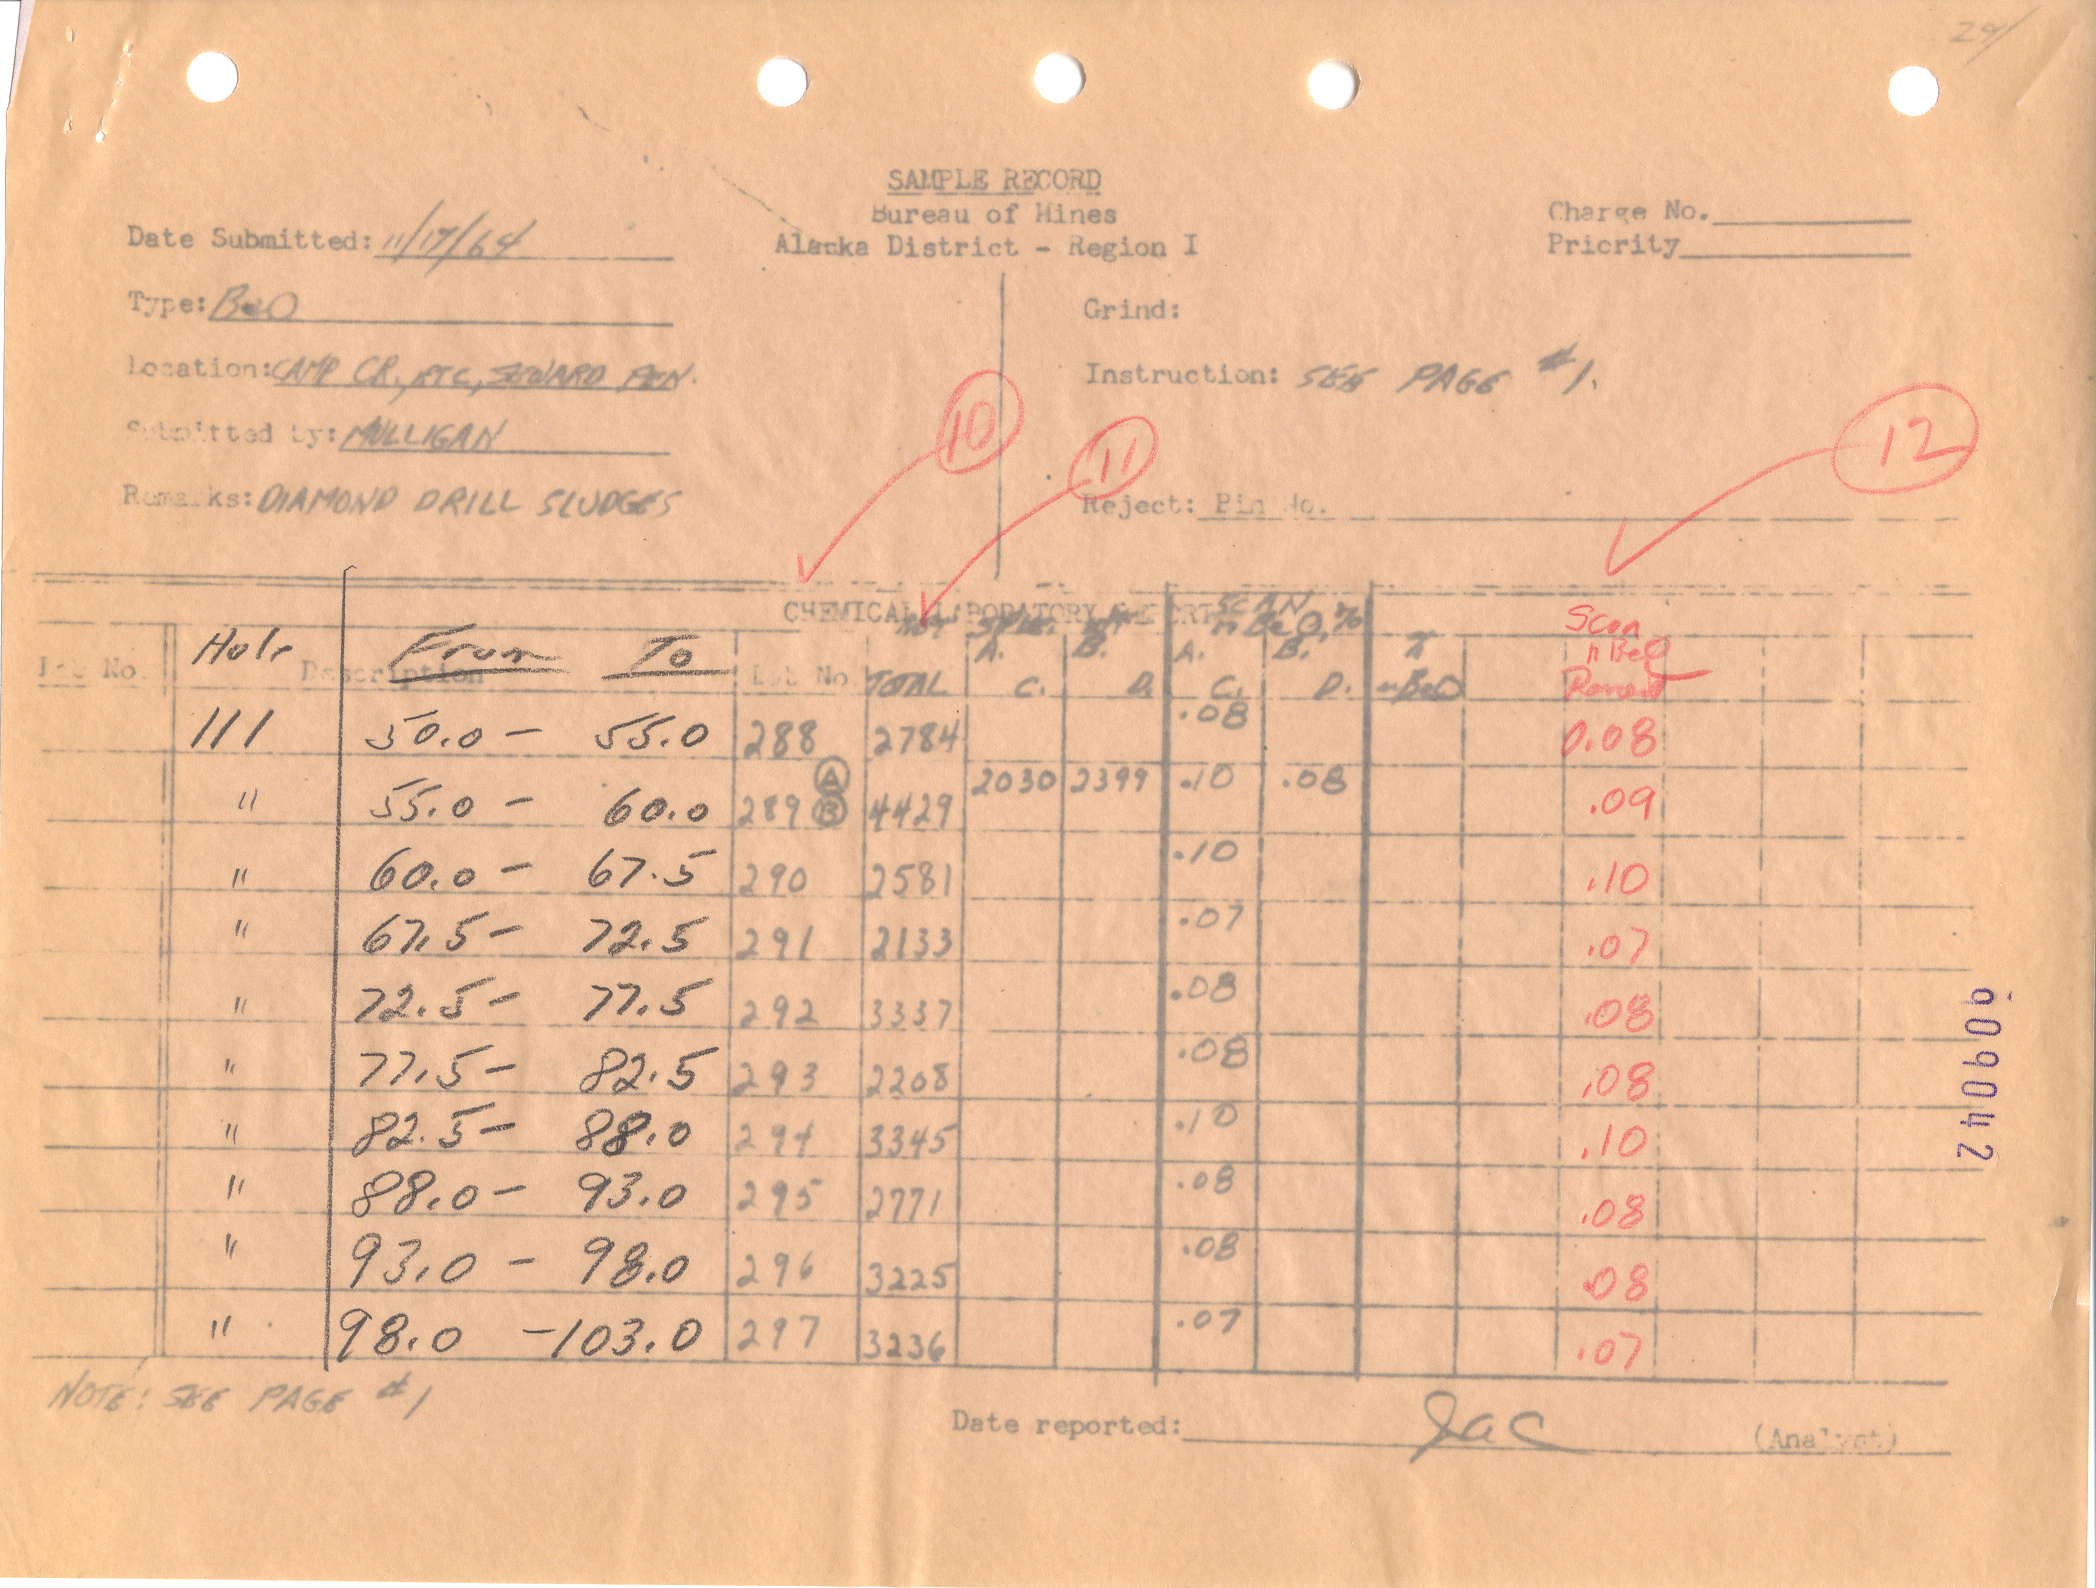 29/
SAMPLE RECORD
Bureau of Mines
Alaska District - Region I
Charge No.
Priority
Date Submitted: 11/17/64
Type: BeO
Grind:
Location: CAMP CR, ETC, SEWARD PEN.
Instruction: SEE PAGE #1.
10
11
12
Submitted by: MULLIGAN
Remarks: DIAMOND DRILL SLUDGES
Reject: Bin No.
CHEMICAL LABORATORY REPORT
Lot No. Hole Description From To Lot No. TOTAL A. B. C. D. SCAN BeO, % A. B. C. D. BeO Scan n BeO Percent
111 50.0 - 55.0 288 2784 .08 0.08
" 55.0 - 60.0 289 A B 4429 2030 2399 .10 .08 .09
" 60.0 - 67.5 290 2581 .10 .10
" 67.5 - 72.5 291 2133 .07 .07
" 72.5 - 77.5 292 3337 .08 .08
" 77.5 - 82.5 293 2208 .08 .08
" 82.5 - 88.0 294 3345 .10 .10
" 88.0 - 93.0 295 2771 .08 .08
" 93.0 - 98.0 296 3225 .08 .08
" 98.0 - 103.0 297 3236 .07 .07
NOTE: SEE PAGE #1
Date reported: Jac (Analyst)
009042